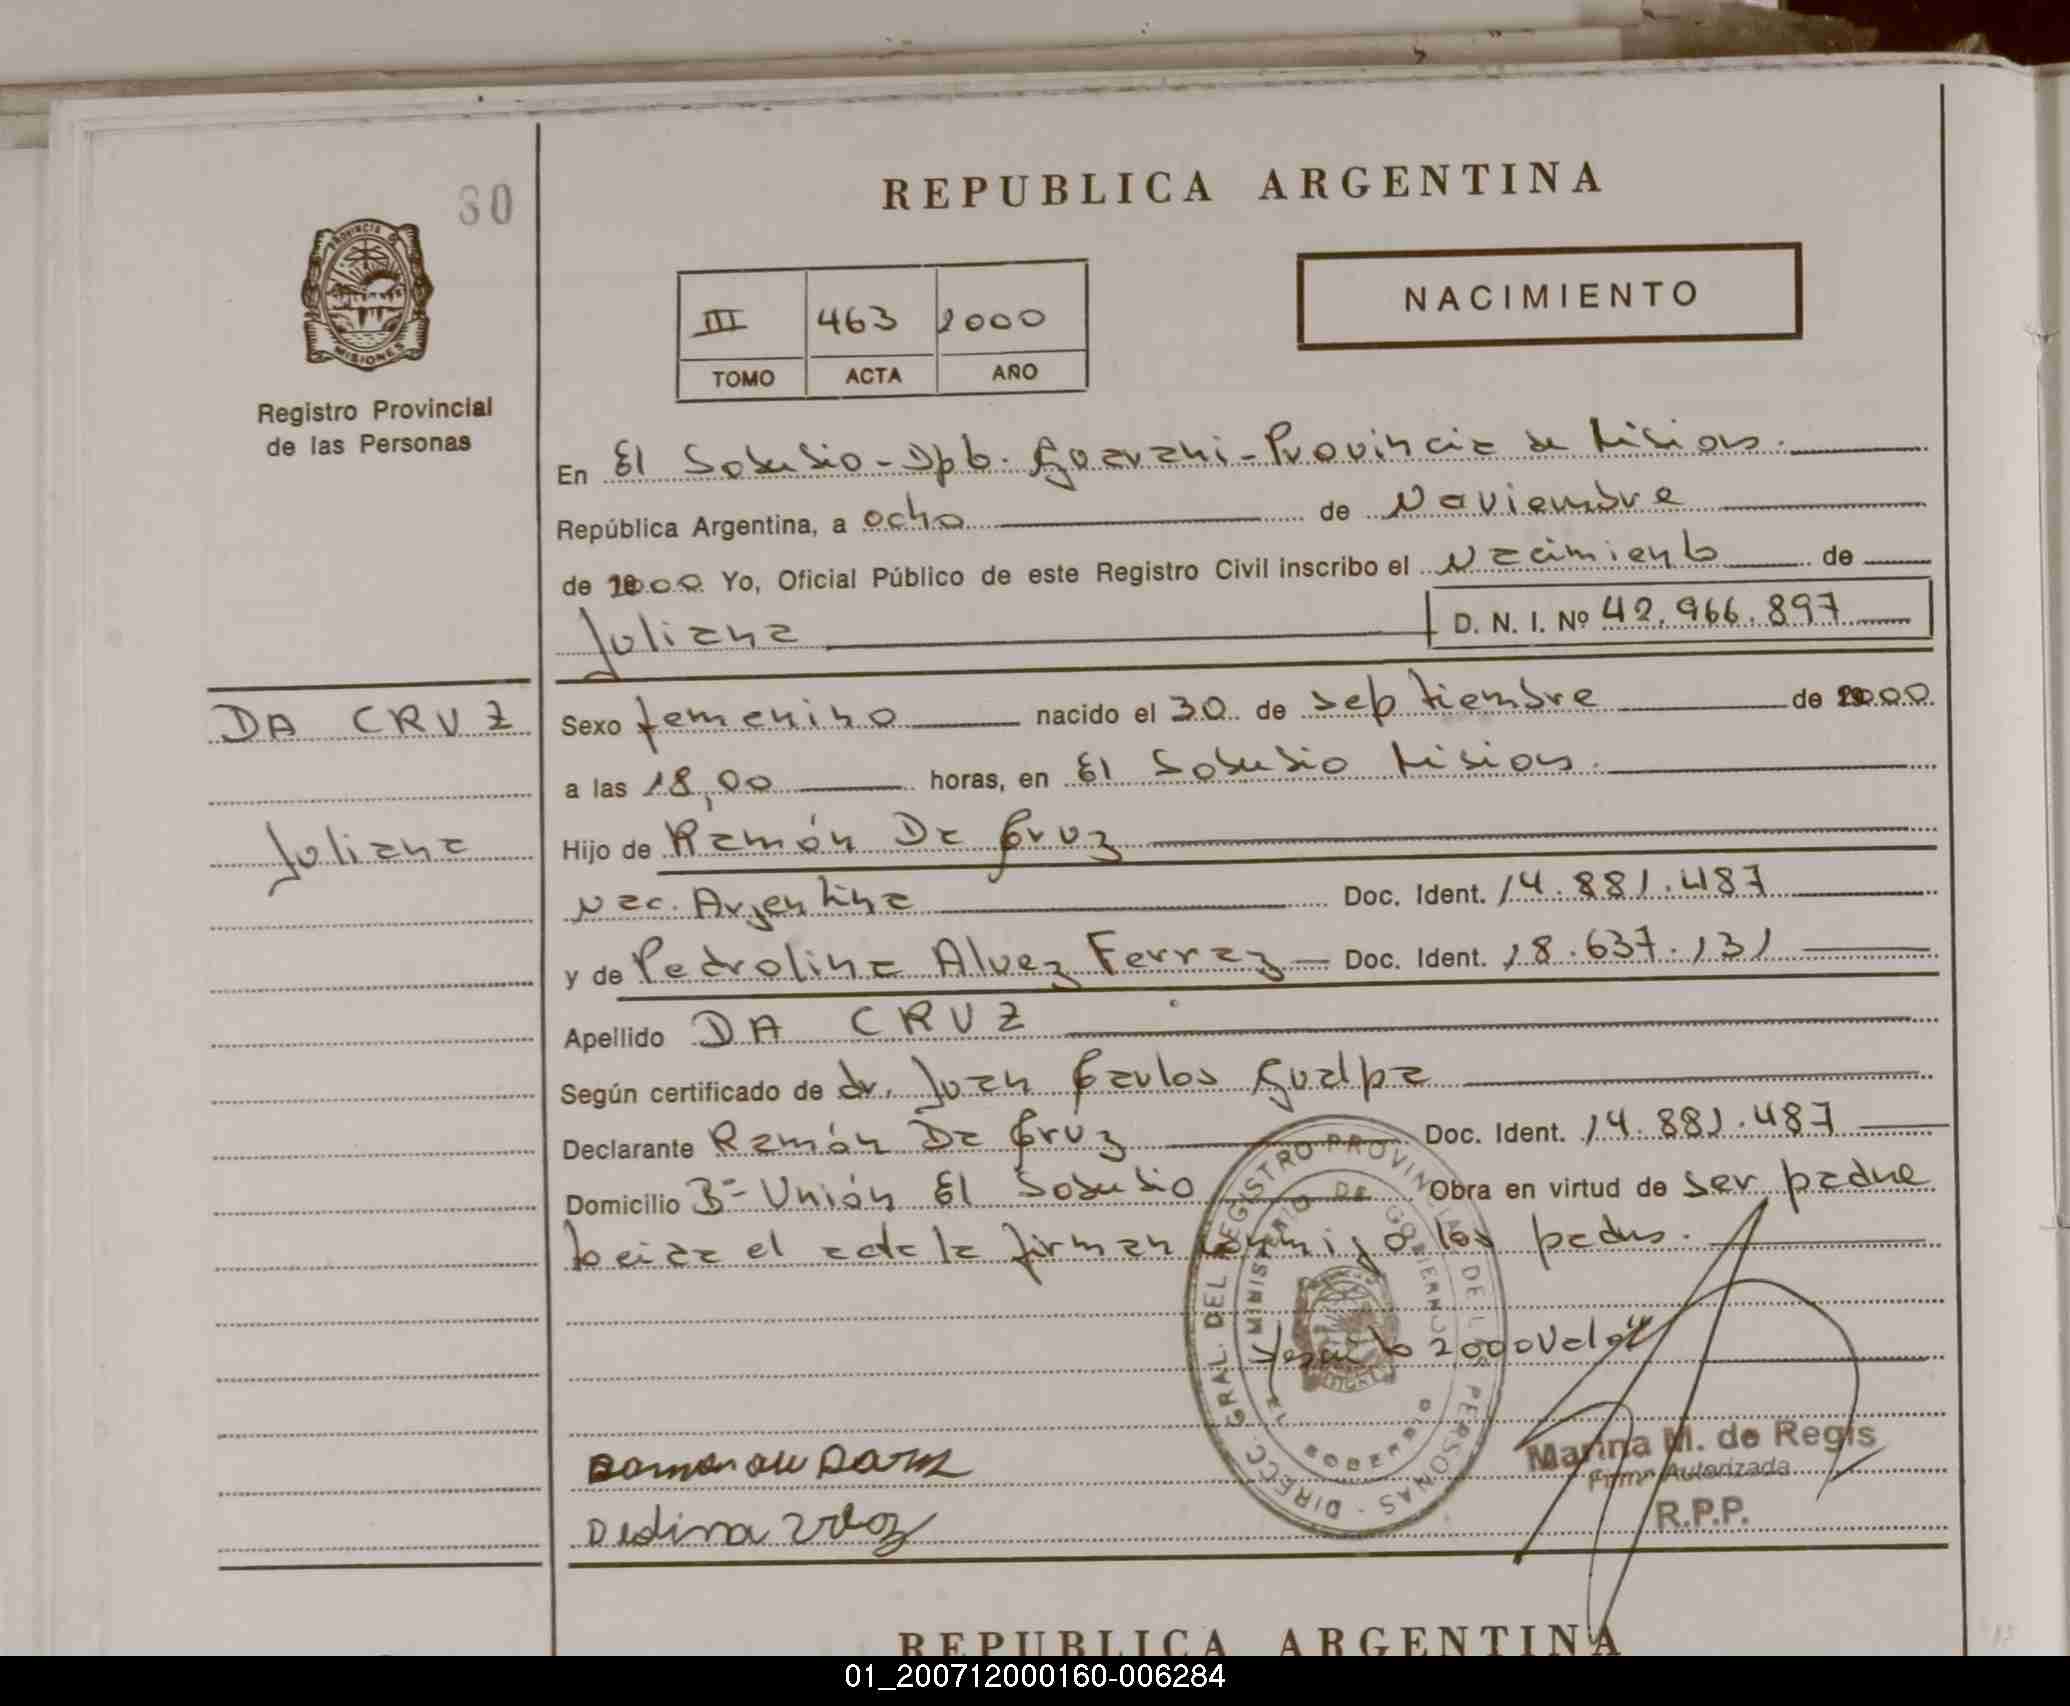 30
REPUBLICA ARGENTINA
PROVINCIA D
MISIONES
Registro Provincial
de las Personas
NACIMIENTO
III 463 2000
TOMO ACTA AÑO
En El Soberbio - Dpto. Guarani - Provincia de Misiones.
República Argentina, a ocho de Noviembre
de 2000 Yo, Oficial Público de este Registro Civil inscribo el Nacimiento de
Juliana D. N. I. Nº 42.966.897
DA CRUZ
Juliana
Sexo femenino nacido el 30 de septiembre de 2000
a las 18,00 horas, en El Soberbio Misiones.
Hijo de Ramón Da Cruz
Nac. Argentina Doc. Ident. 14.881.487
y de Pedrolina Alvez Ferraz Doc. Ident. 18.637.131
Apellido DA CRUZ
Según certificado de dr. Juan Carlos Gualpa
Declarante Ramón Da Cruz Doc. Ident. 14.881.487
Domicilio Bº Unión El Soberbio Obra en virtud de ser padre
Leida el acta la firman conmigo los padres.
2000 Vale
DIRECC. GRAL. DEL REGISTRO PROVINCIAL DE LAS PERSONAS
MINISTERIO DE GOBIERNO
Marina M. de Regis
Firma Autorizada
R.P.P.
REPUBLICA ARGENTINA
01_200712000160-006284